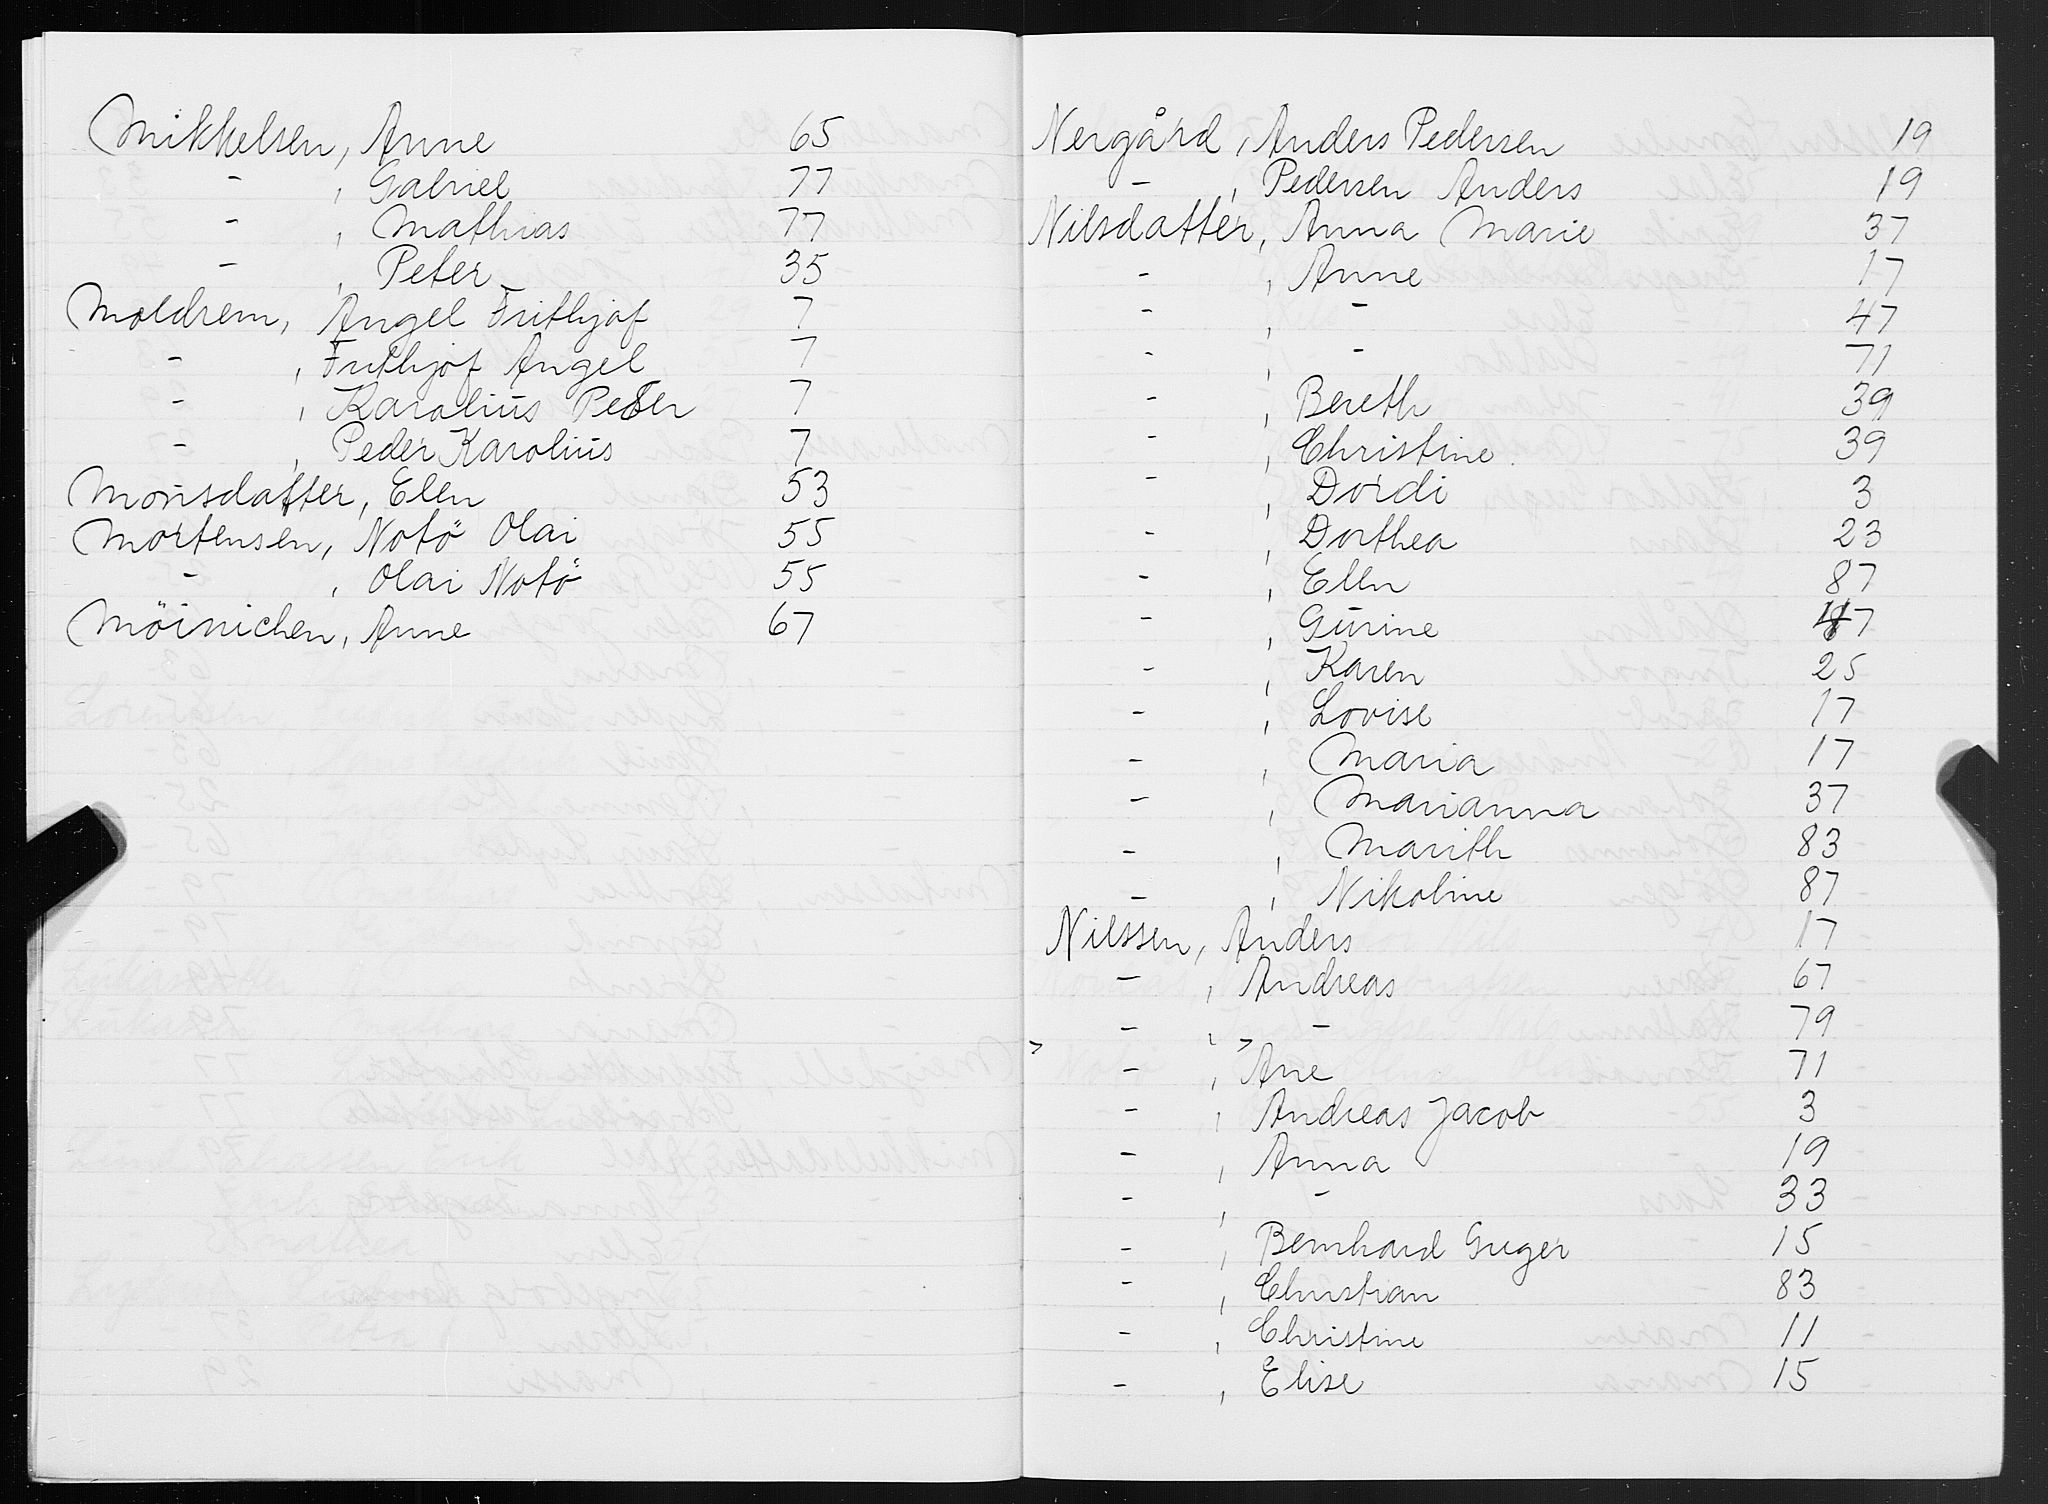 Mikkelsen, Anne 65
- , Gabriel 77
- , Mathias 77
- , Peter 35
Moldrem, Angel Frithjof 7
- , Frithjof Angel 7
- , Karolius Peder 7
- , Peder Karolius 7
Monsdatter, Elen 53
Mortensen, Notö Olai 55
- , Olai Notö 55
Möinichen, Anne 67
Nergård, Anders Pedersen 19
- , Pedersen Anders 19
Nilsdatter, Anna Marie 37
- , Anne 17
- , - 47
- , - 71
- , Bereth 39
- , Christine 39
- , Dordi 3
- , Dorthea 23
- , Ellen 87
- , Gurine 47
- , Karen 25
- , Lovise 17
- , Maria 17
- , Marianna 37
- , Marith 83
- , Nikoline 87
Nilssen, Anders 17
- , Andreas 67
- , - 79
- , Ane 71
- , Andreas Jacob 3
- , Anna 19
- , - 33
- , Bernhard Greger 15
- , Christian 83
- , Christine 11
- , Elise 15